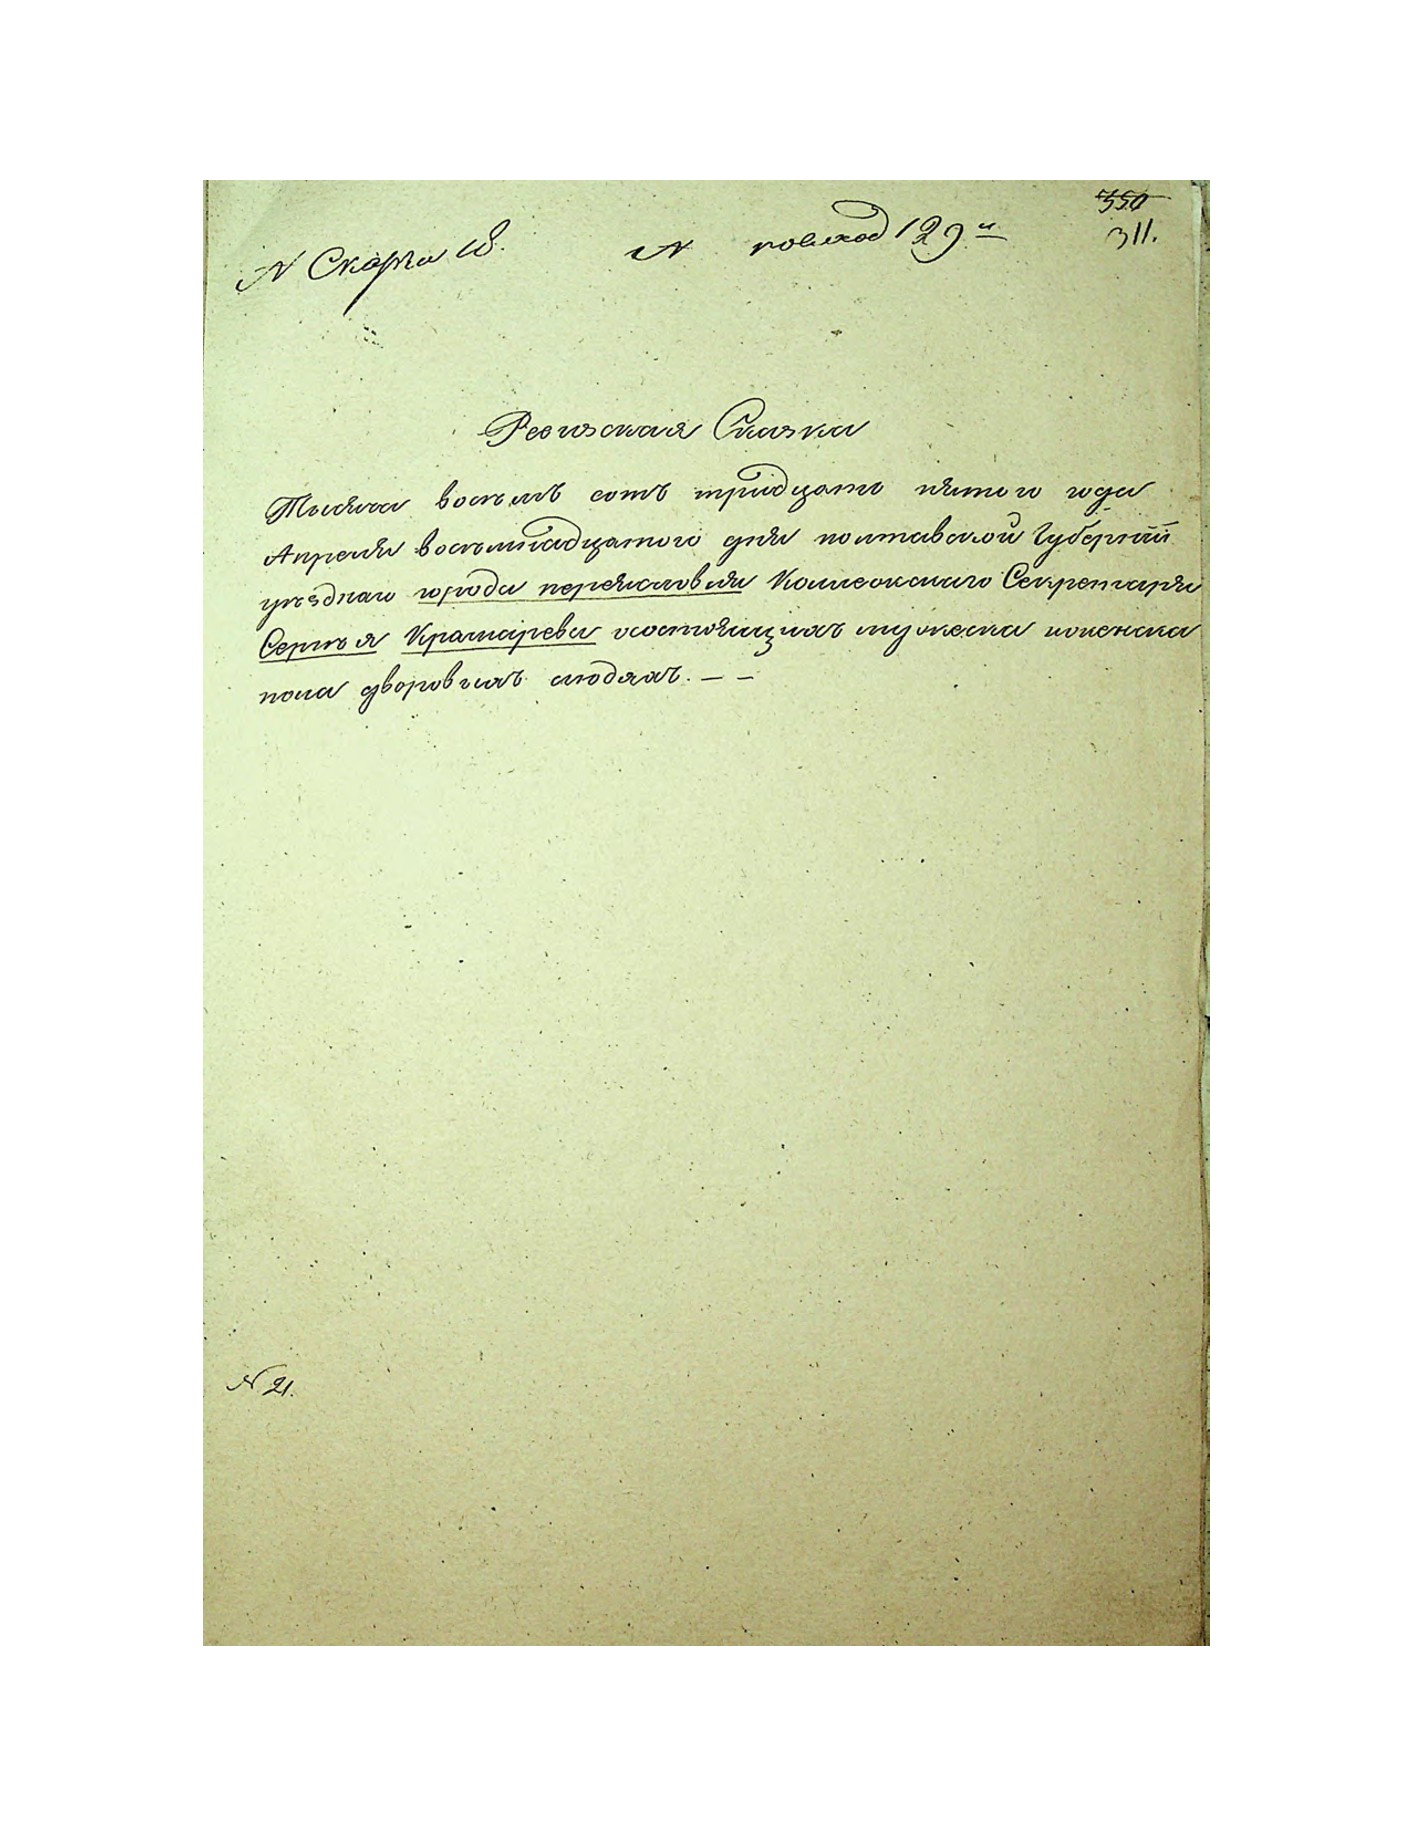 350
311.
№ 129й
Ревизская Сказка
Тысяча восемь сотъ тридцать пятого года
Апреля восемнадцатого дня полтавской Губернiи
уезднаго города переяславля Коллежскаго Секретаря
Сергъя Крамарева осостоящихъ мужеска иженска
пола дворовыхъ людяхъ. — —
№ 21.